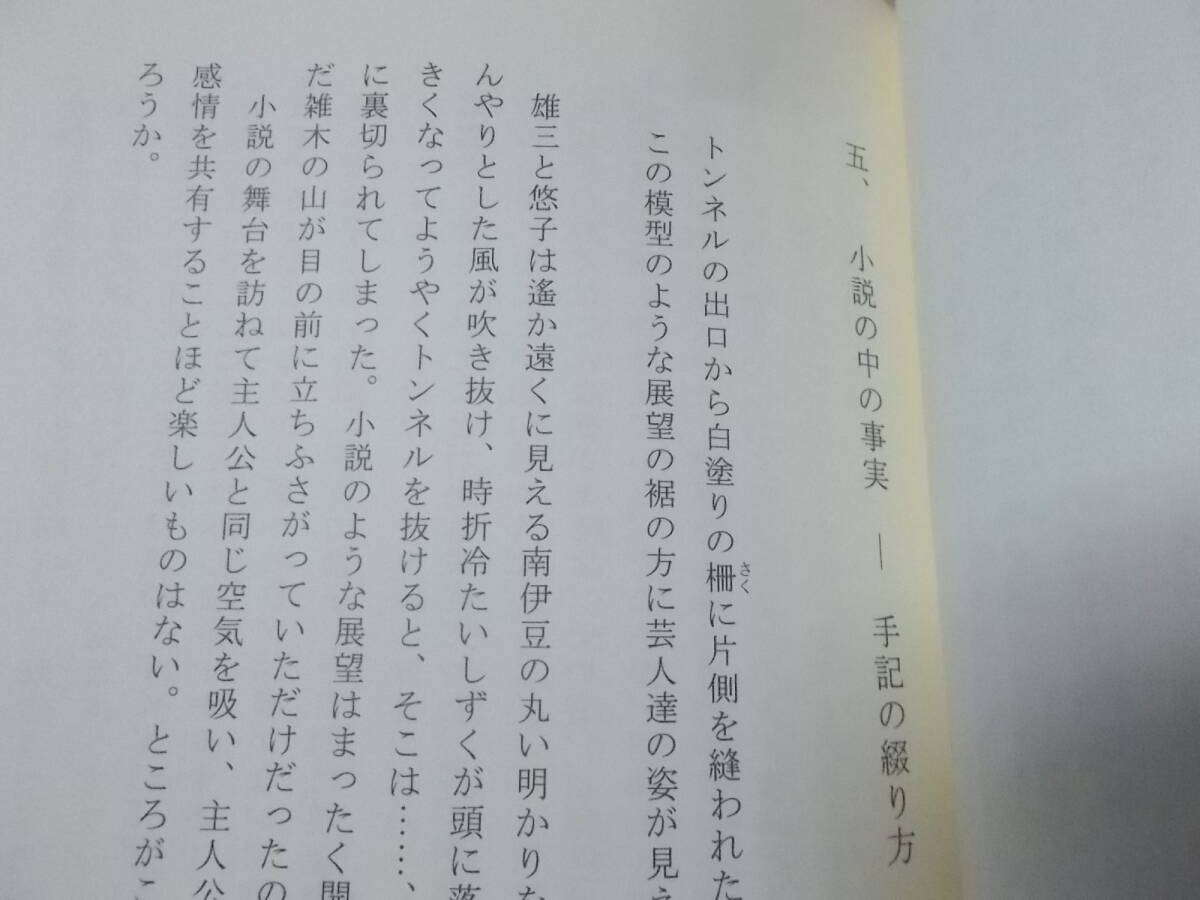 五、 小説の中の事実 ― 手記の綴り方
トンネルの出口から白塗りの柵に片側を縫われた
さく
この模型のような展望の裾の方に芸人達の姿が見え
雄三と悠子は遙か遠くに見える南伊豆の丸い明かりな
んやりとした風が吹き抜け、時折冷たいしずくが頭に落
きくなってようやくトンネルを抜けると、そこは……、
に裏切られてしまった。小説のような展望はまったく開
だ雑木の山が目の前に立ちふさがっていただけだったの
小説の舞台を訪ねて主人公と同じ空気を吸い、主人公
感情を共有することほど楽しいものはない。ところがこ
ろうか。